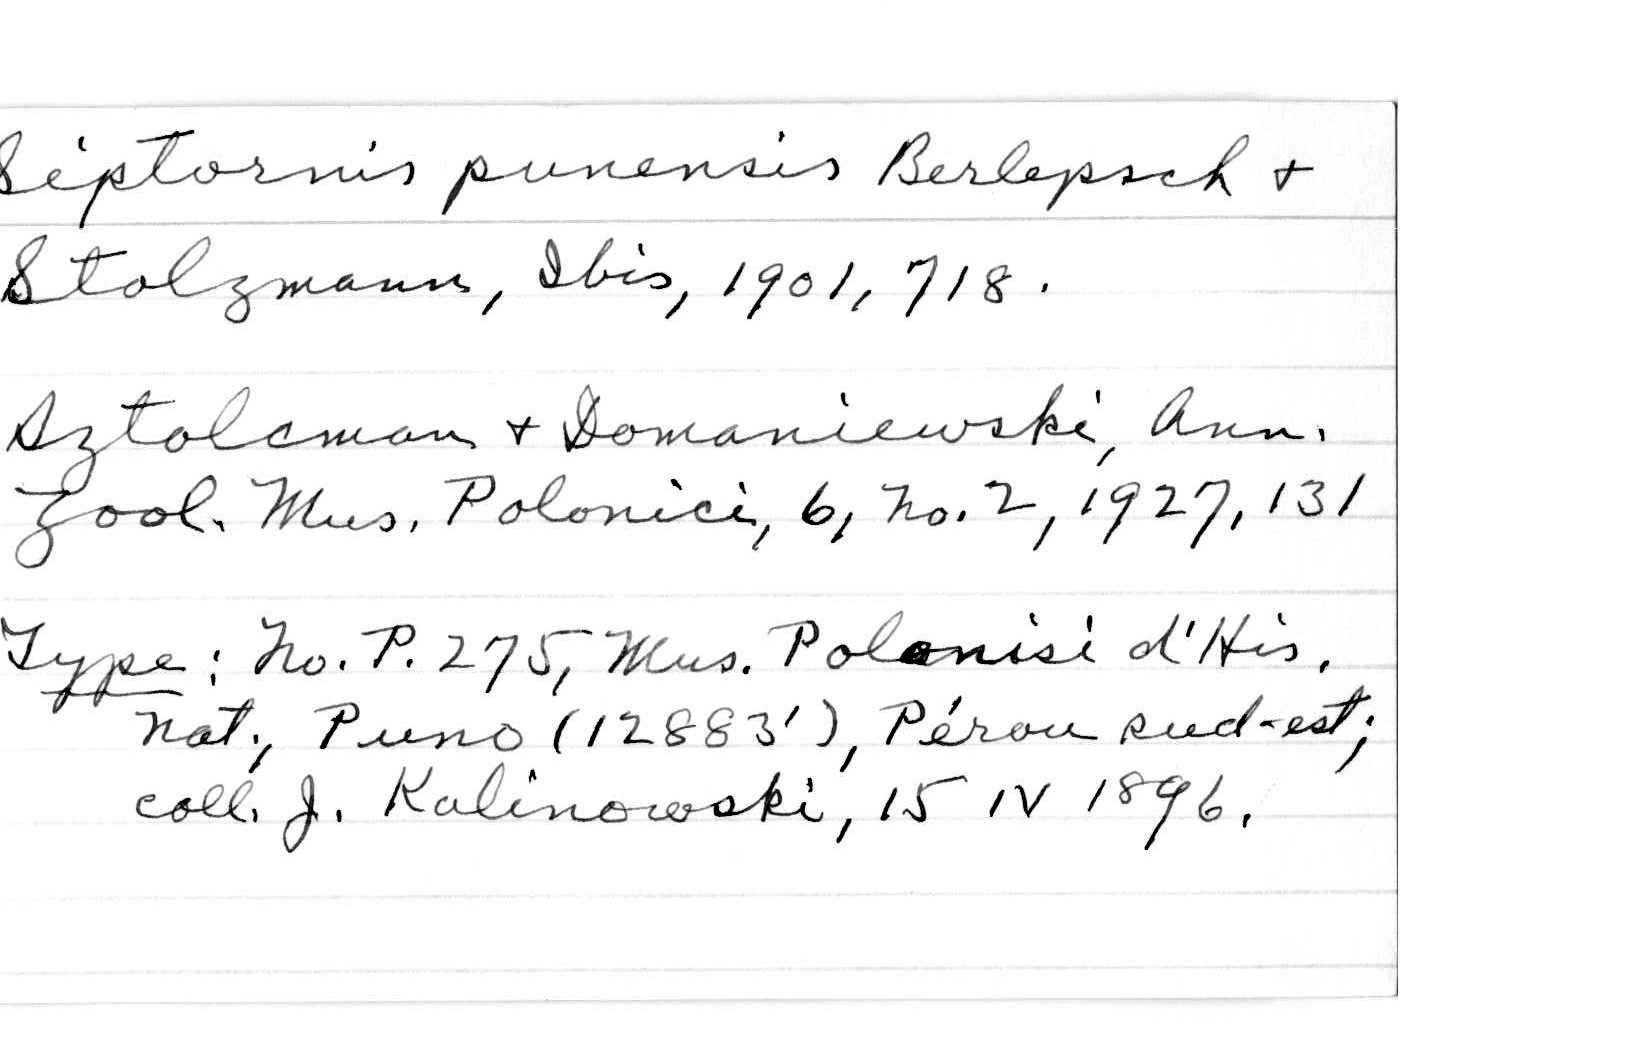 Siptornis punensis Berlepsch +
Stolzmann, Ibis, 1901, 718.
Sztolcman + Domaniewski, Ann.
Zool. Mus. Polonici, 6, No. 2, 1927, 131
Type: No. P. 275, Mus. Polonisi d'His.
Nat., Puno (12883'), Pérou sud-est;
coll. J. Kalinowski, 15 IV 1896.